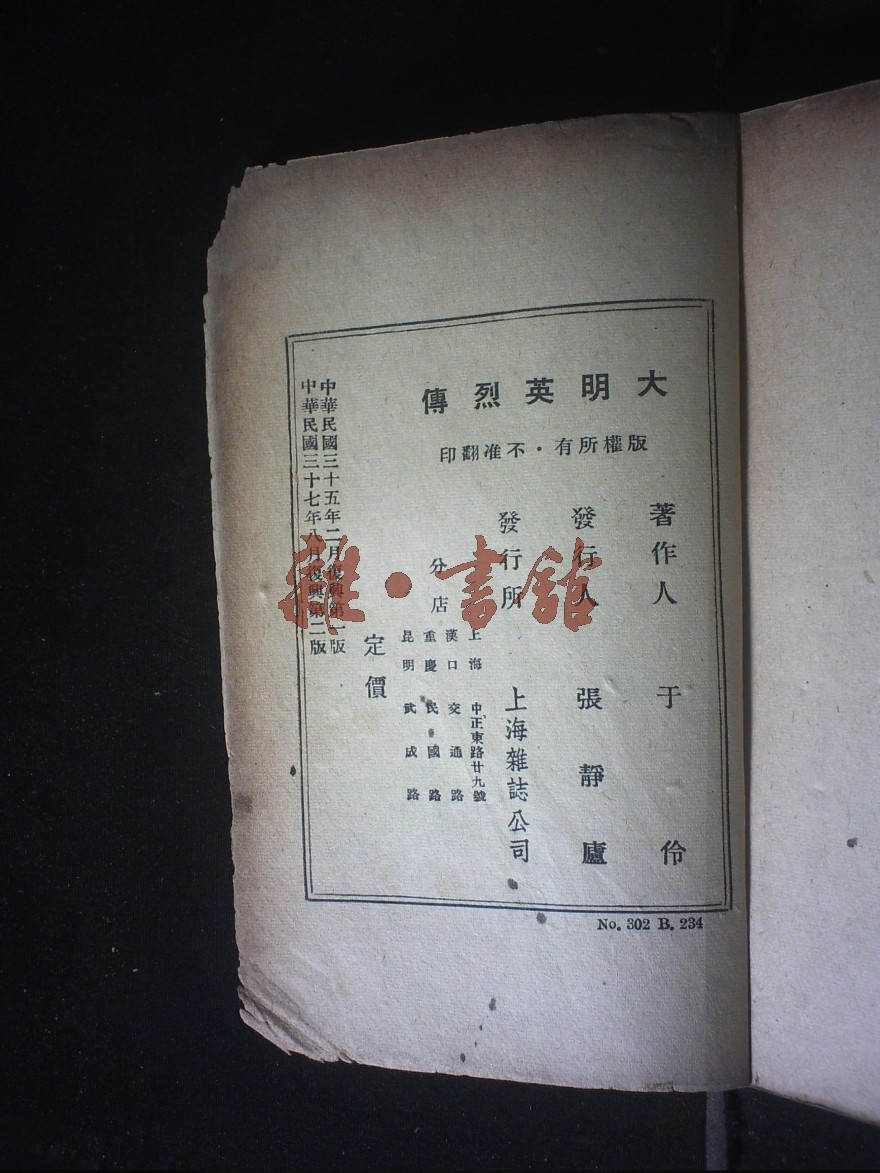 大明英烈傳
版權所有・不准翻印
著作人 于伶
發行人 張靜廬
發行所 上海雜誌公司
分店
上海 中正東路廿九號
漢口 交通路
重慶 民國路
昆明 武成路
定價
中華民國三十五年二月復興第一版
中華民國三十七年八月復興第二版
No. 302 B. 234
雜・書館